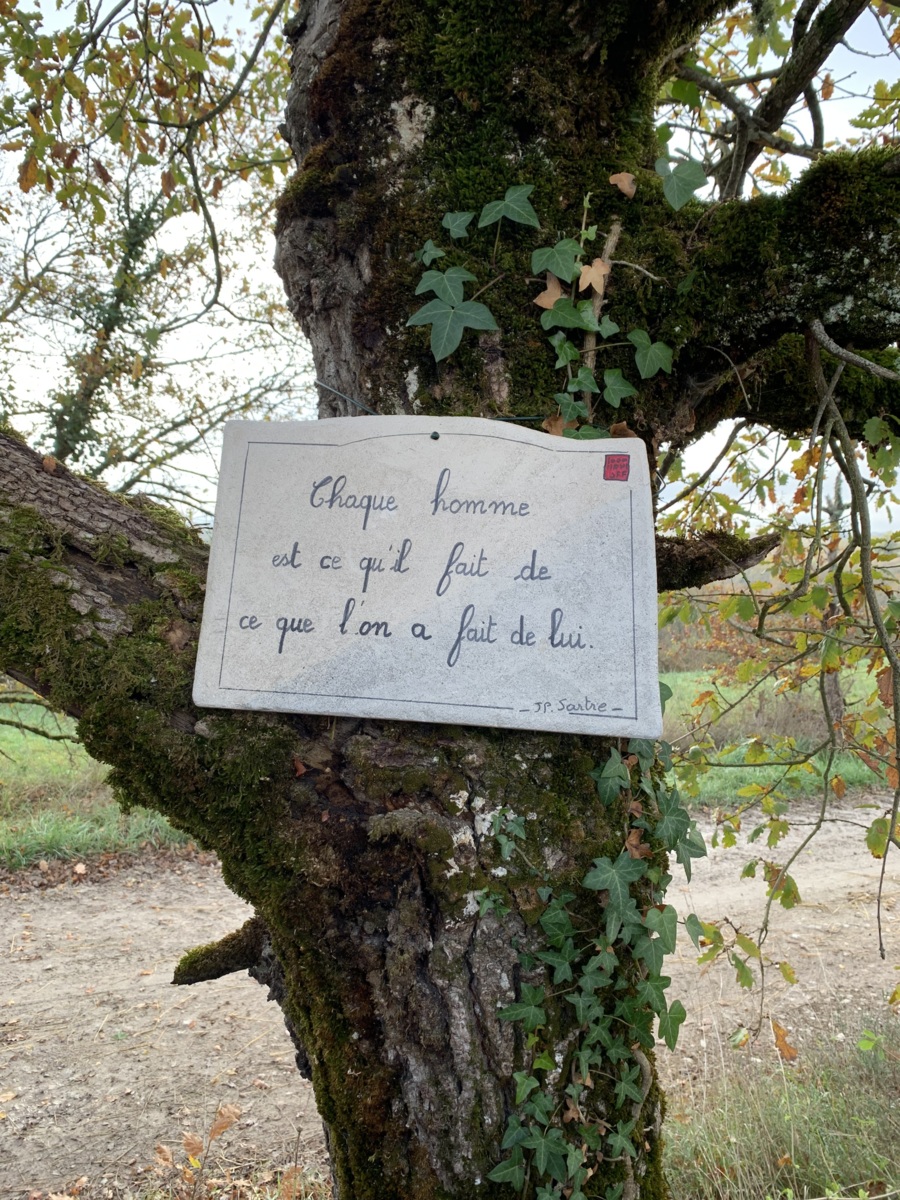 Chaque homme
est ce qu'il fait de
ce que l'on a fait de lui.
- J.P. Sartre -